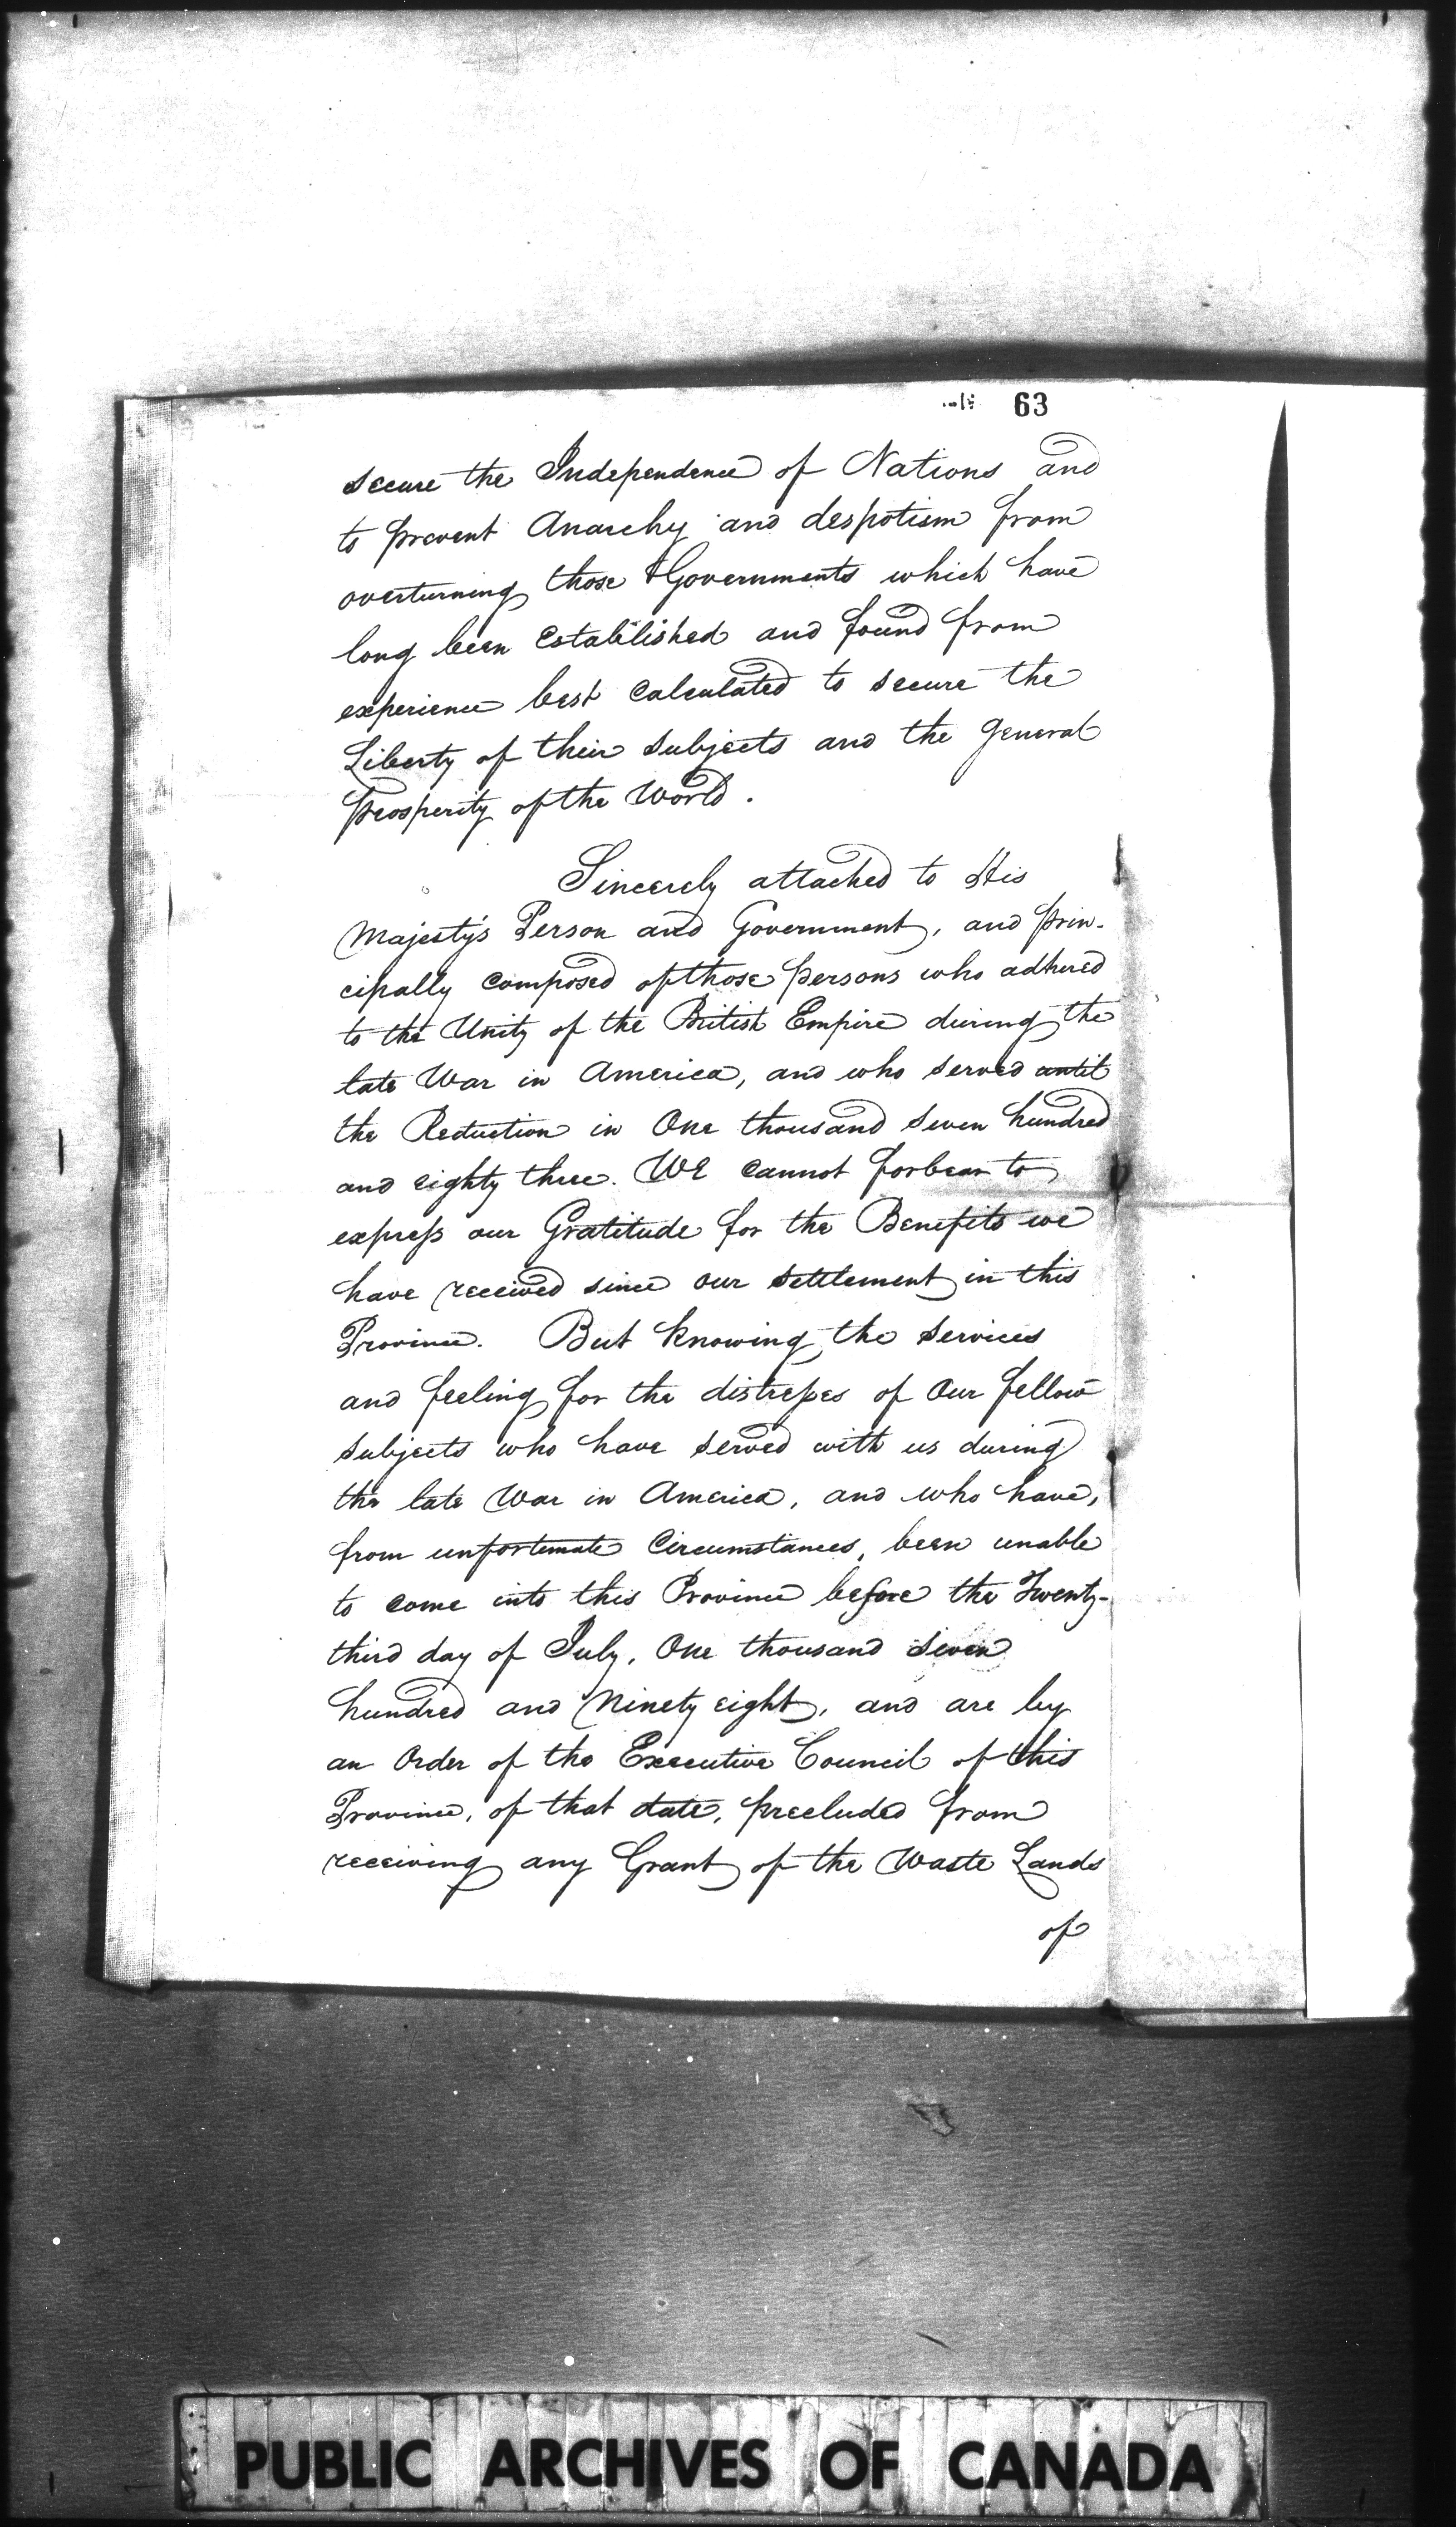 63
secure the Independence of Nations and
to prevent Anarchy and despotism from
overturning those Governments which have
long been established and found from
experience best calculated to secure the
Liberty of their subjects and the general
Prosperity of the World.
Sincerely attached to His
Majesty's Person and Government, and prin-
cipally composed of those persons who adhered
to the Unity of the British Empire during the
late War in America, and who served until
the Reduction in One thousand seven hundred
and eighty three. We cannot forbear to
express our Gratitude for the Benefits we
have received since our settlement in this
Province. But knowing the services
and feeling for the distresses of our fellow
subjects who have served with us during
the late War in America, and who have,
from unfortunate Circumstances, been unable
to come into this Province before the Twenty-
third day of July, One thousand seven
hundred and Ninety eight, and are by
an Order of the Executive Council of this
Province, of that date, precluded from
receiving any Grant of the Waste Lands
of
PUBLIC ARCHIVES OF CANADA